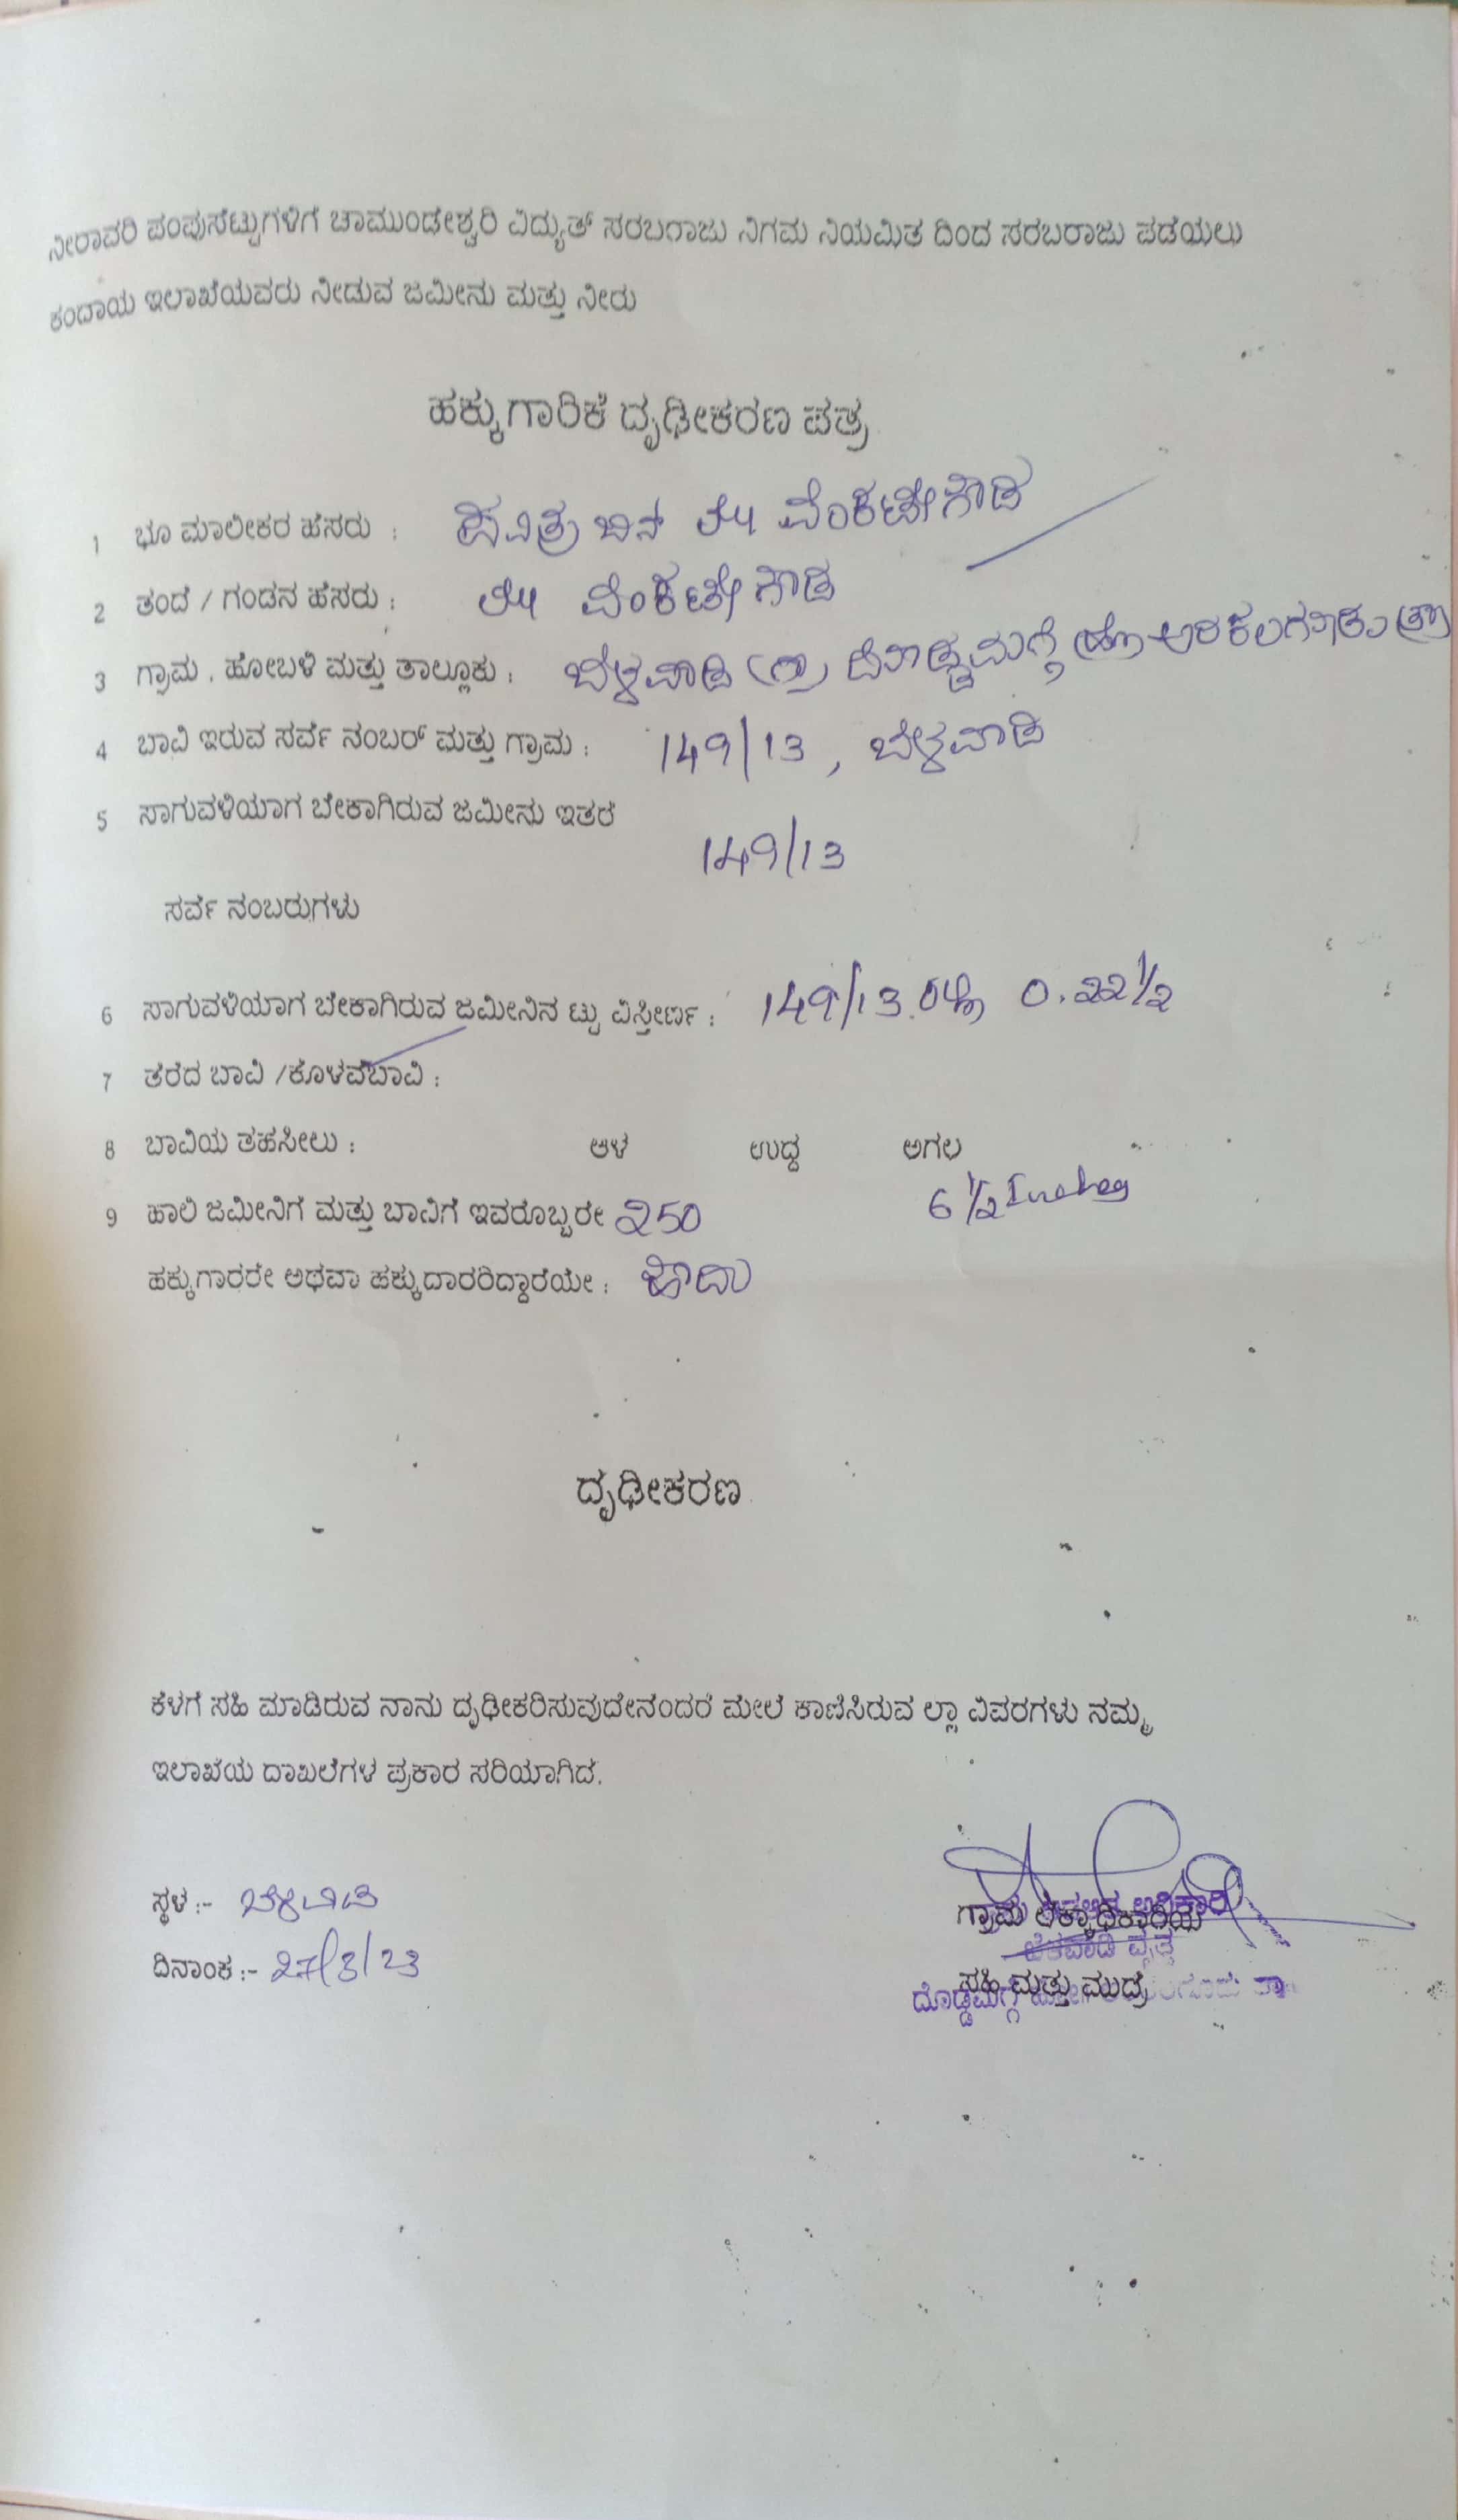 ನೀರಾವರಿ ಪಂಪುಸೆಟ್ಟುಗಳಿಗೆ ಚಾಮುಂಡೇಶ್ವರಿ ವಿದ್ಯುತ್ ಸರಬರಾಜು ನಿಗಮ ನಿಯಮಿತ ದಿಂದ ಸರಬರಾಜು ಪಡೆಯಲು
ಕಂದಾಯ ಇಲಾಖೆಯವರು ನೀಡುವ ಜಮೀನು ಮತ್ತು ನೀರು
ಹಕ್ಕುಗಾರಿಕೆ ದೃಢೀಕರಣ ಪತ್ರ
1 ಭೂ ಮಾಲೀಕರ ಹೆಸರು : ಪವಿತ್ರ ಬಿನ್ ವೆಂಕಟೇಗೌಡ
2 ತಂದೆ / ಗಂಡನ ಹೆಸರು : ವೆಂಕಟೇಗೌಡ
3 ಗ್ರಾಮ , ಹೋಬಳಿ ಮತ್ತು ತಾಲ್ಲೂಕು : ಬೆಳವಾಡಿ (ಗ್ರಾ) ದೊಡ್ಡಮಗ್ಗೆ (ಹೋ) ಅರಕಲಗೂಡು (ತಾ)
4 ಬಾವಿ ಇರುವ ಸರ್ವೆ ನಂಬರ್ ಮತ್ತು ಗ್ರಾಮ : 149/13 , ಬೆಳವಾಡಿ
5 ಸಾಗುವಳಿಯಾಗ ಬೇಕಾಗಿರುವ ಜಮೀನು ಇತರೆ
149/13
ಸರ್ವೆ ನಂಬರುಗಳು
6 ಸಾಗುವಳಿಯಾಗ ಬೇಕಾಗಿರುವ ಜಮೀನಿನ ಟ್ಟು ವಿಸ್ತೀರ್ಣ : 149/13 0.22 1/2
7 ತೆರೆದ ಬಾವಿ /ಕೊಳವೆಬಾವಿ :
8 ಬಾವಿಯ ತಹಸೀಲು : ಆಳ ಉದ್ದ ಅಗಲ
6 1/2 Inches
9 ಹಾಲಿ ಜಮೀನಿಗೆ ಮತ್ತು ಬಾವಿಗೆ ಇವರೊಬ್ಬರೇ 250
ಹಕ್ಕುಗಾರರೇ ಅಥವಾ ಹಕ್ಕುದಾರರಿದ್ದಾರೆಯೇ : ಹೌದು
ದೃಢೀಕರಣ
ಕೆಳಗೆ ಸಹಿ ಮಾಡಿರುವ ನಾನು ದೃಢೀಕರಿಸುವುದೇನೆಂದರೆ ಮೇಲೆ ಕಾಣಿಸಿರುವ ಲ್ಲಾ ವಿವರಗಳು ನಮ್ಮ
ಇಲಾಖೆಯ ದಾಖಲೆಗಳ ಪ್ರಕಾರ ಸರಿಯಾಗಿದೆ.
ಸ್ಥಳ :-
ಗ್ರಾಮ ಲೆಕ್ಕಾಧಿಕಾರಿಯ
ದಿನಾಂಕ :- 27/3/23
ಸಹಿ ಮತ್ತು ಮುದ್ರೆ
ದೊಡ್ಡಮಗ್ಗೆ